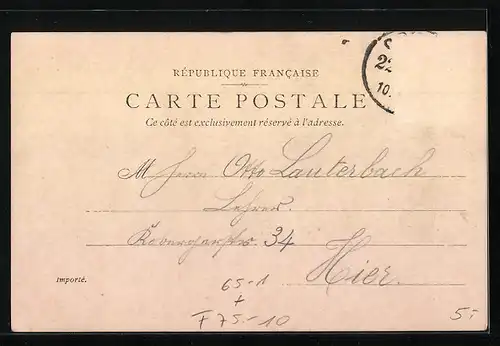 RÉPUBLIQUE FRANÇAISE
CARTE POSTALE
Ce côté est exclusivement réservé à l'adresse.
M Herrn Otto Lauterbach
Lehrer.
34
Hier.
Importé.
65-1
F75.-10
5.-
22
10.